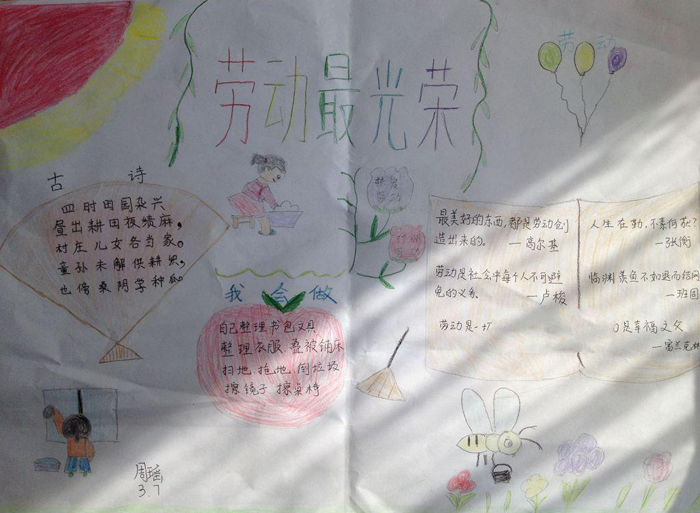 劳动最光荣
劳动
古诗
四时田园杂兴
昼出耕田夜绩麻,
村庄儿女各当家。
童孙未解供耕织,
也傍桑阴学种瓜
我会做
自己整理书包文具
整理衣服 叠被铺床
扫地、拖地、倒垃圾
擦镜子 擦桌椅
最美好的东西,都是劳动创
造出来的。 —高尔基
劳动是社会中每个人不可避
免的义务。 —卢梭
劳动是
人生在勤,不索何获?
—张衡
临渊羡鱼不如退而结网
—班固
是幸福之父
—富兰克林
周瑶
3.7